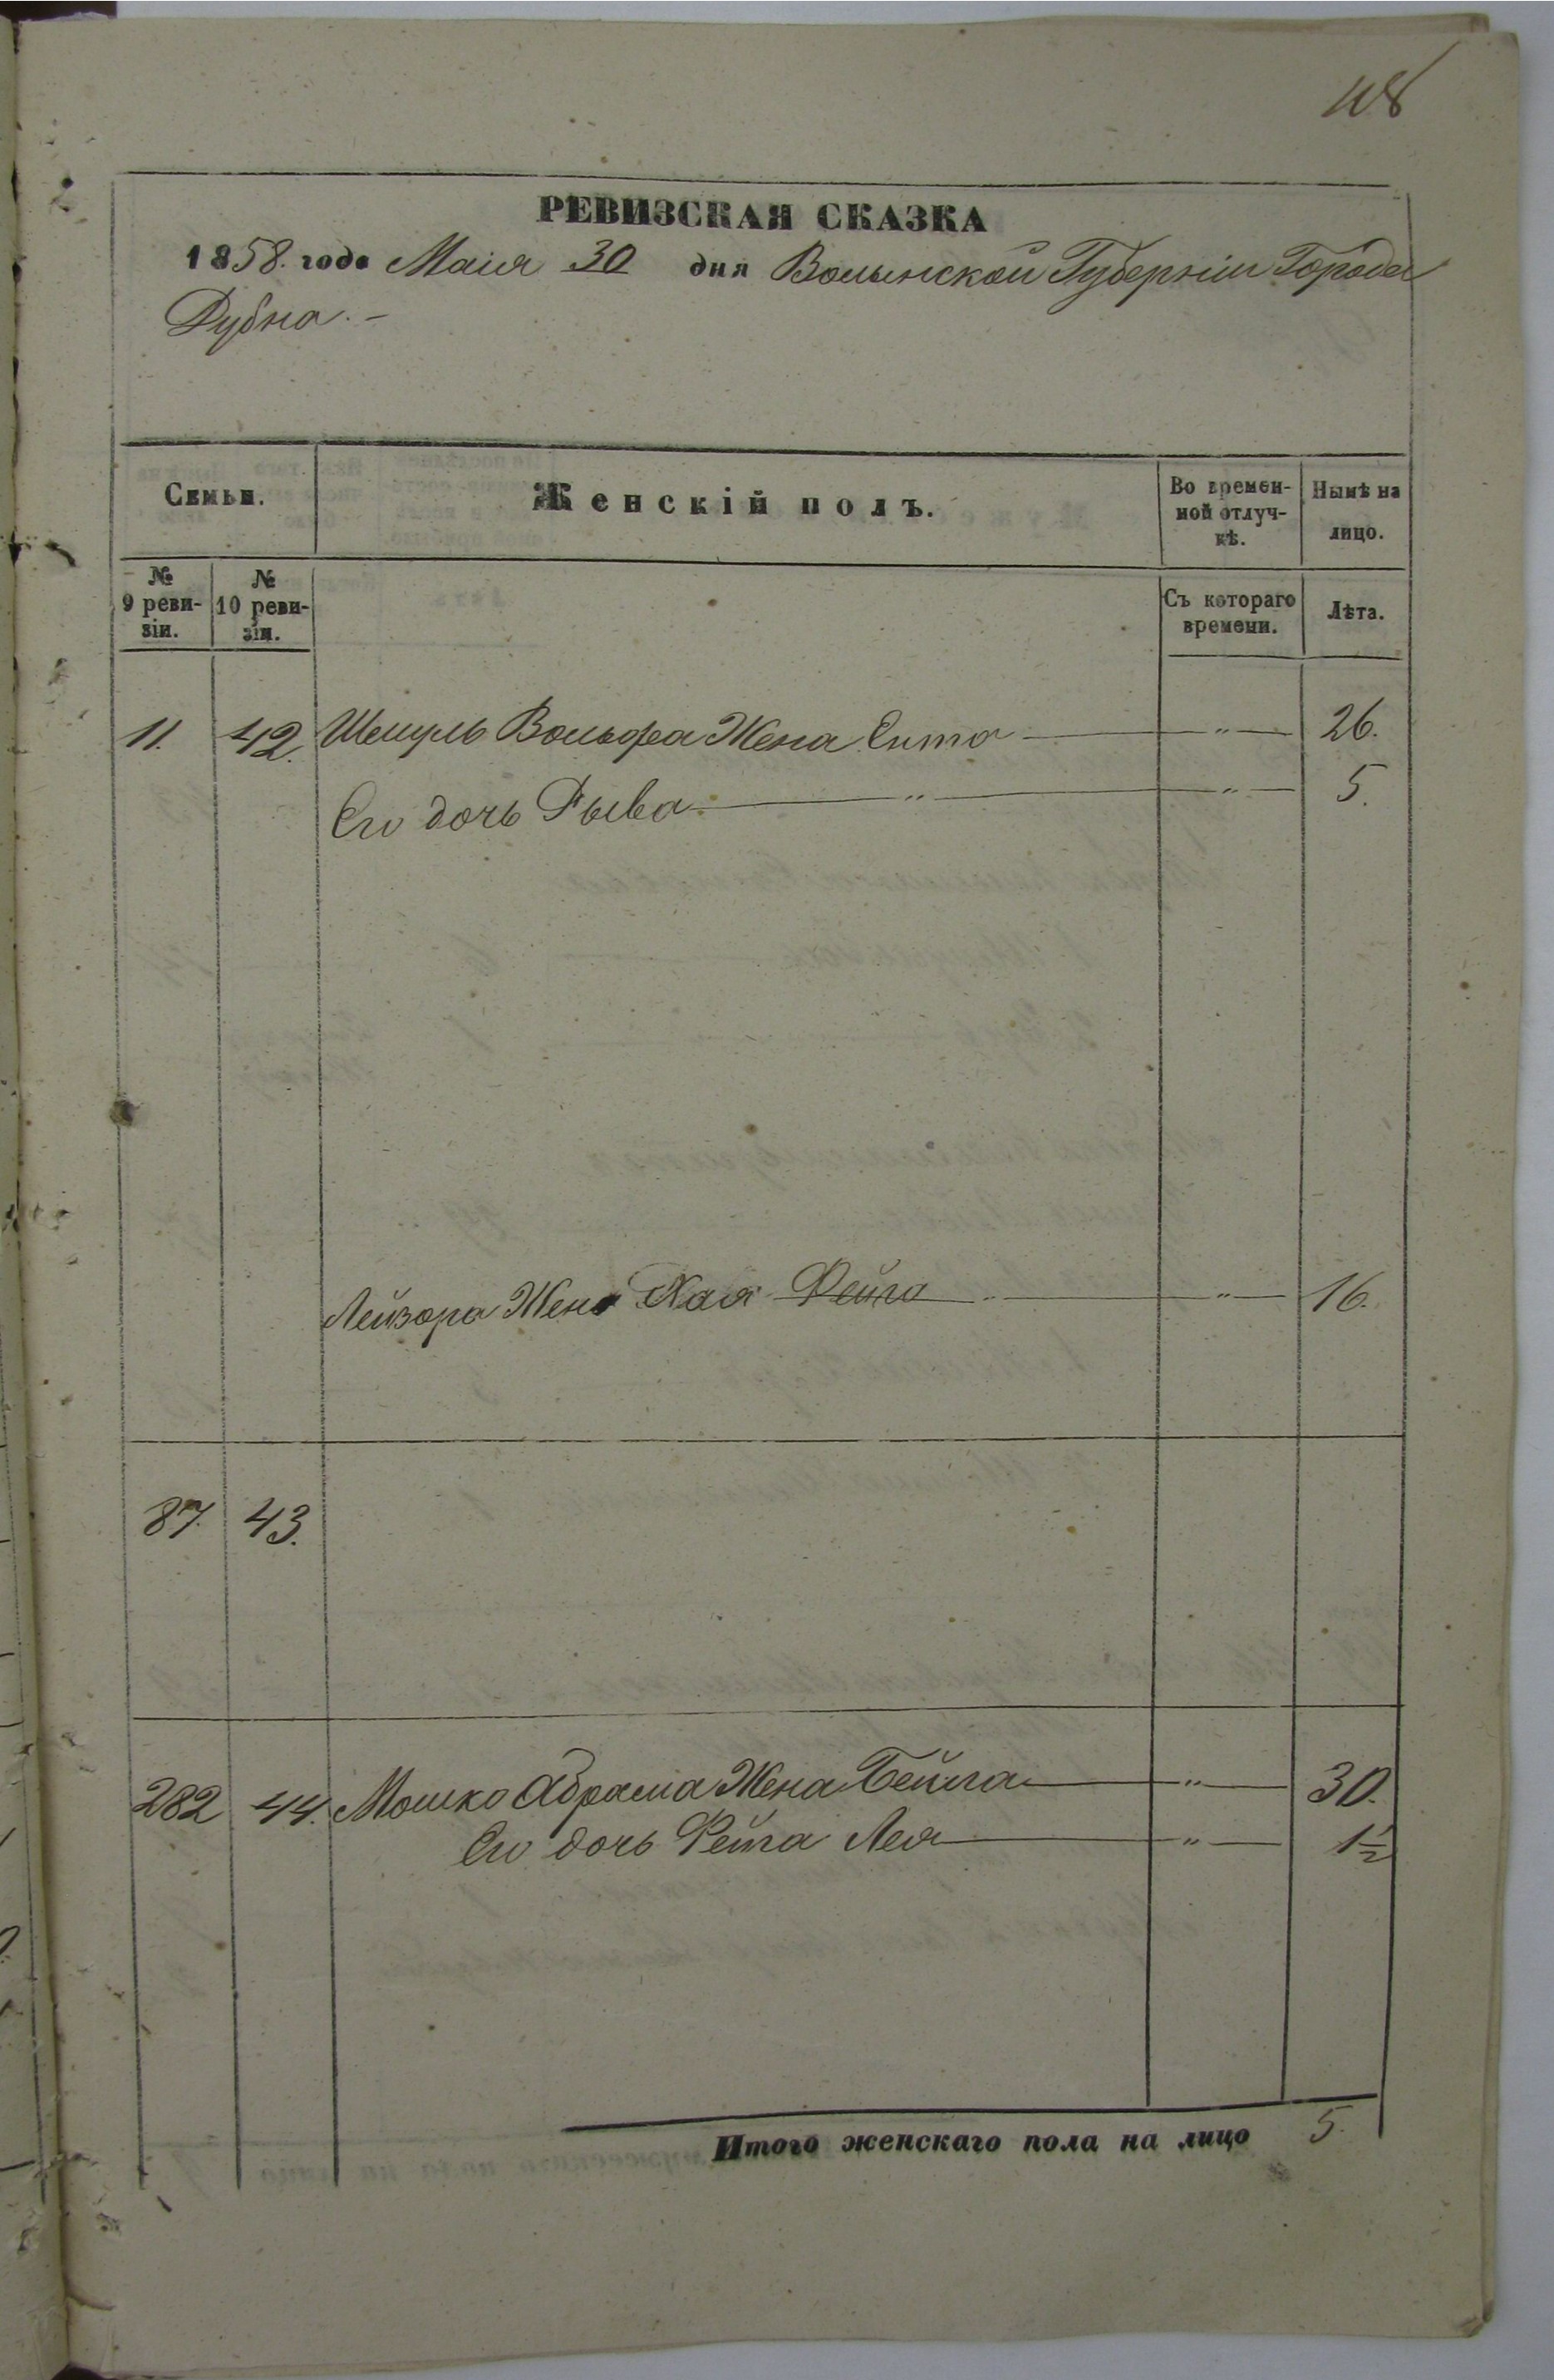 108
РЕВИЗСКАЯ СКАЗКА
1858. года Маія 30 дня Волынской Губерніи Города
Дубна.-
Семьи.
Женскій полъ.
Во времен-
ной отлуч-
кѣ.
Нынѣ на
лицо.
№
9 реви-
зіи.
№
10 реви-
зіи.
Съ котораго
времени.
Лѣта.
11. 42. Шмуль Вольфа Жена Сита — " — 26.
Его дочь Рыва — " — " — 5.
Лейзора Жена Хая Фейга — " — 16.
87. 43.
282 44. Мошко Абрама Жена Бейла — " — 30.
Его дочь Фейга Лея — " — 1½
Итого женскаго пола на лицо 5.